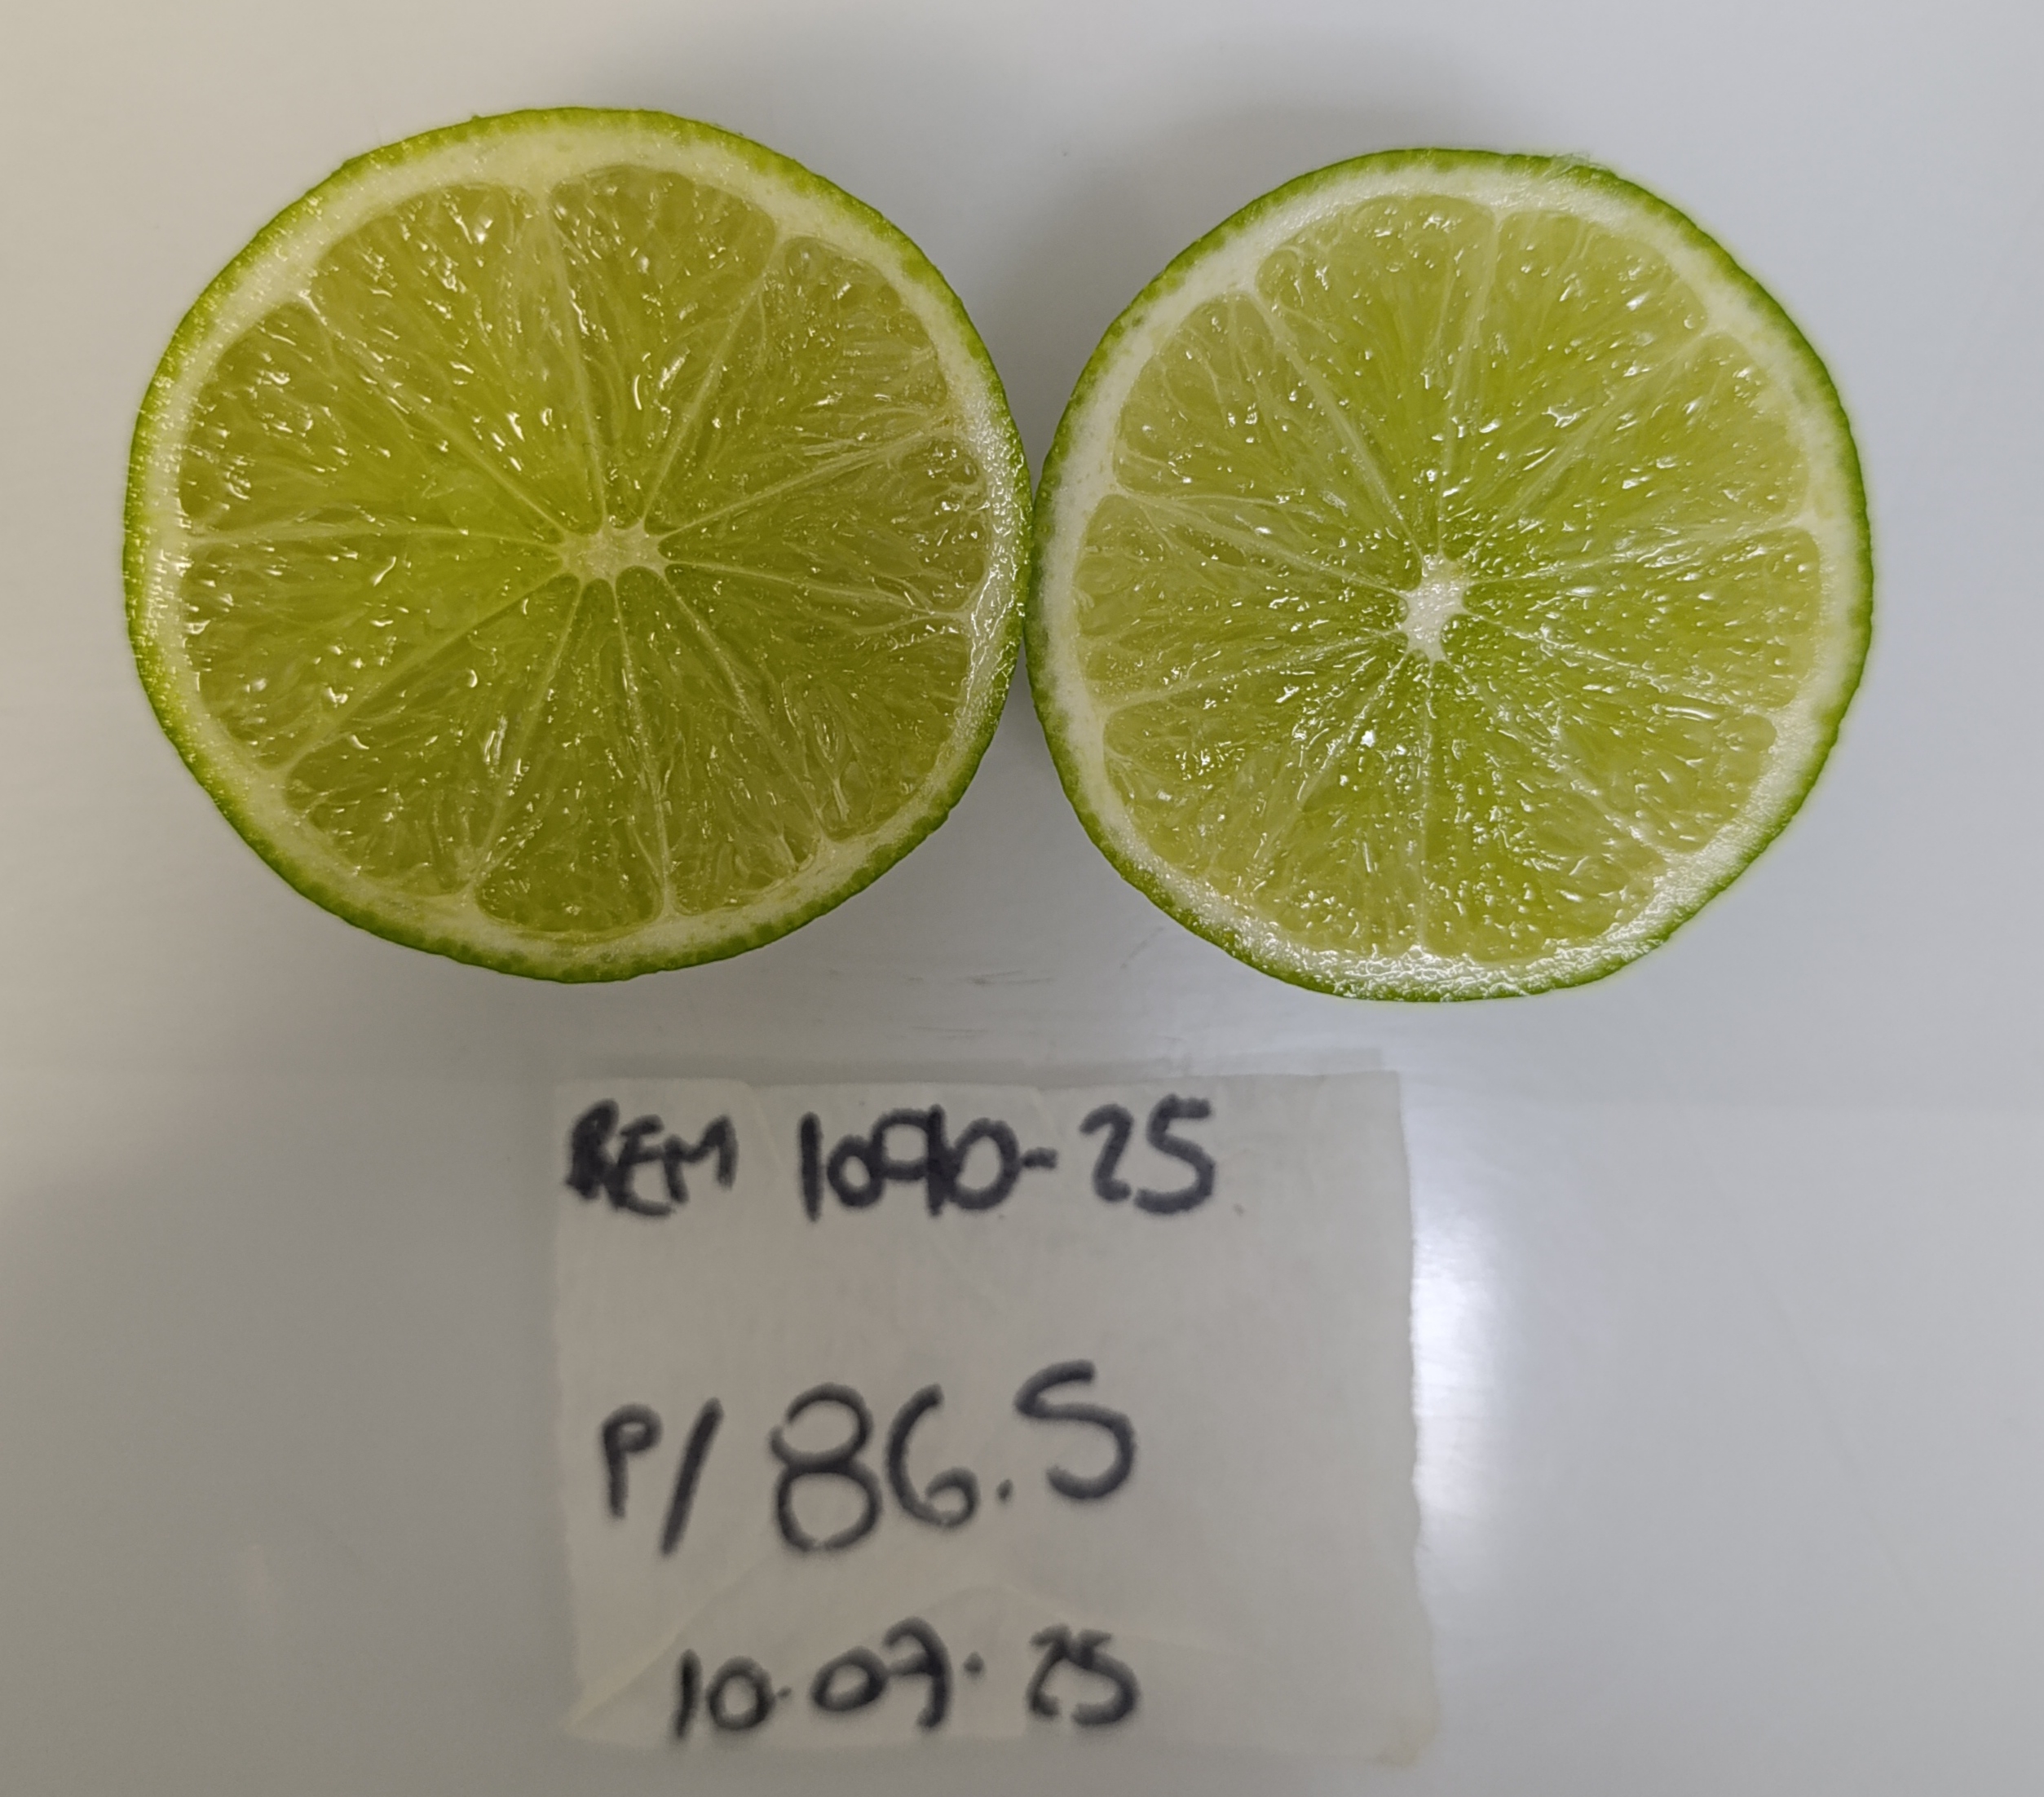 REM 1090-25
P/ 86.5
10.07.25